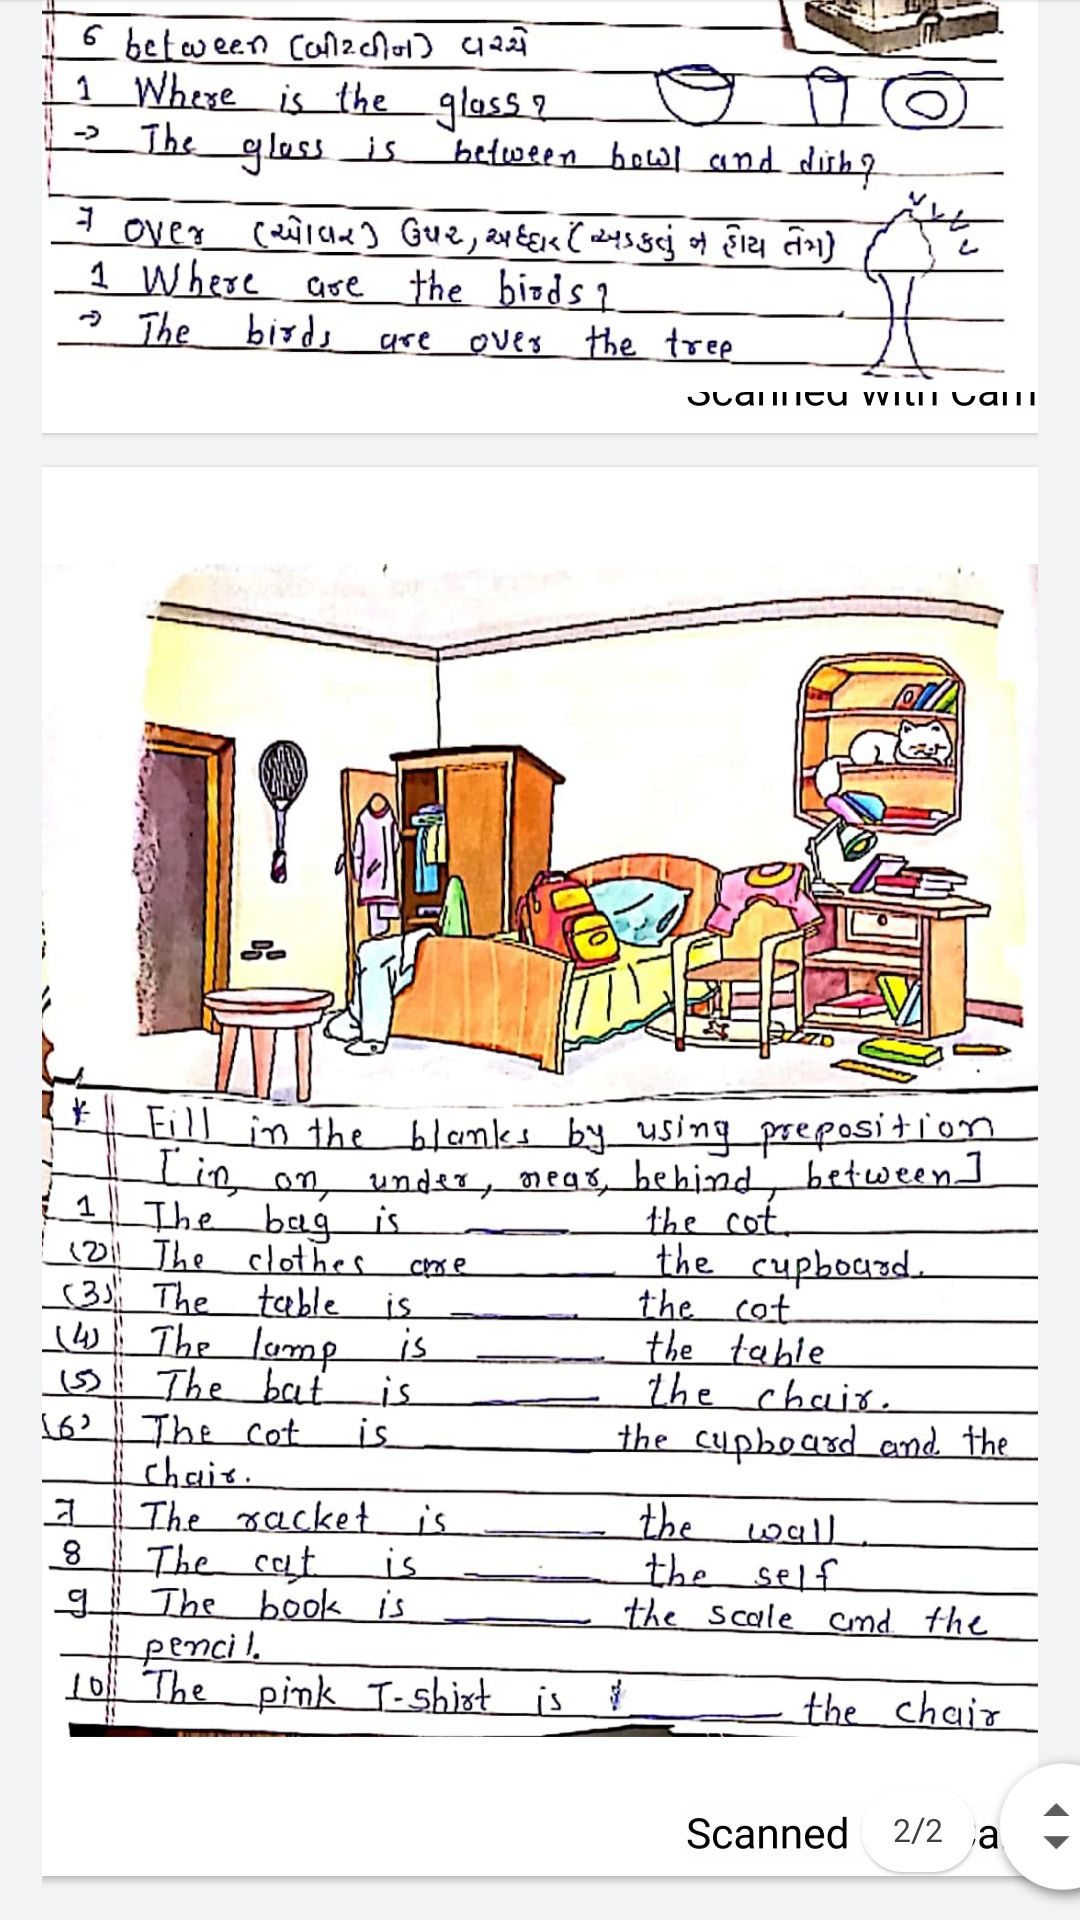 6 between (બીટવીન) વચ્ચે
1 Where is the glass?
→ The glass is between bowl and dish?
7 over (ઓવર) ઉપર, અધ્ધર (અડકતું ન હોય તેમ)
1 Where are the birds?
→ The birds are over the tree
Scanned with Cam
* Fill in the blanks by using preposition
[in, on, under, near, behind, between]
1 The bag is ______ the cot.
(2) The clothes are ______ the cupboard.
(3) The table is ______ the cot
(4) The lamp is ______ the table
(5) The bat is ______ the chair.
(6) The cot is ______ the cupboard and the
chair.
7 The racket is ______ the wall.
8 The cat is ______ the self
9 The book is ______ the scale and the
pencil.
10 The pink T-shirt is ______ the chair
Scanned 2/2 Ca